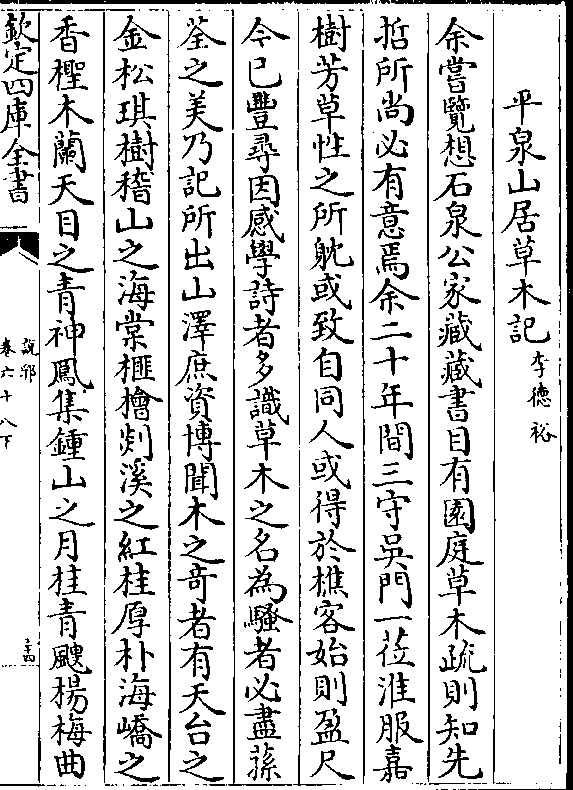 平泉山居草木記李德裕
余嘗覽想石泉公家藏藏書目有園庭草木疏則知先
哲所尚必有意焉余二十年間三守吳門一莅淮服嘉
樹芳草性之所躭或致自同人或得於樵客始則盈尺
今已豐尋因感學詩者多識草木之名為騷者必盡蓀
荃之美乃記所出山澤庶資博聞木之奇者有天台之
金松琪樹稽山之海棠榧檜剡溪之紅桂厚朴海嶠之
香檉木蘭天目之青神鳳集鍾山之月桂青颼楊梅曲
欽定四庫全書
說郛
卷六十八下
三十四